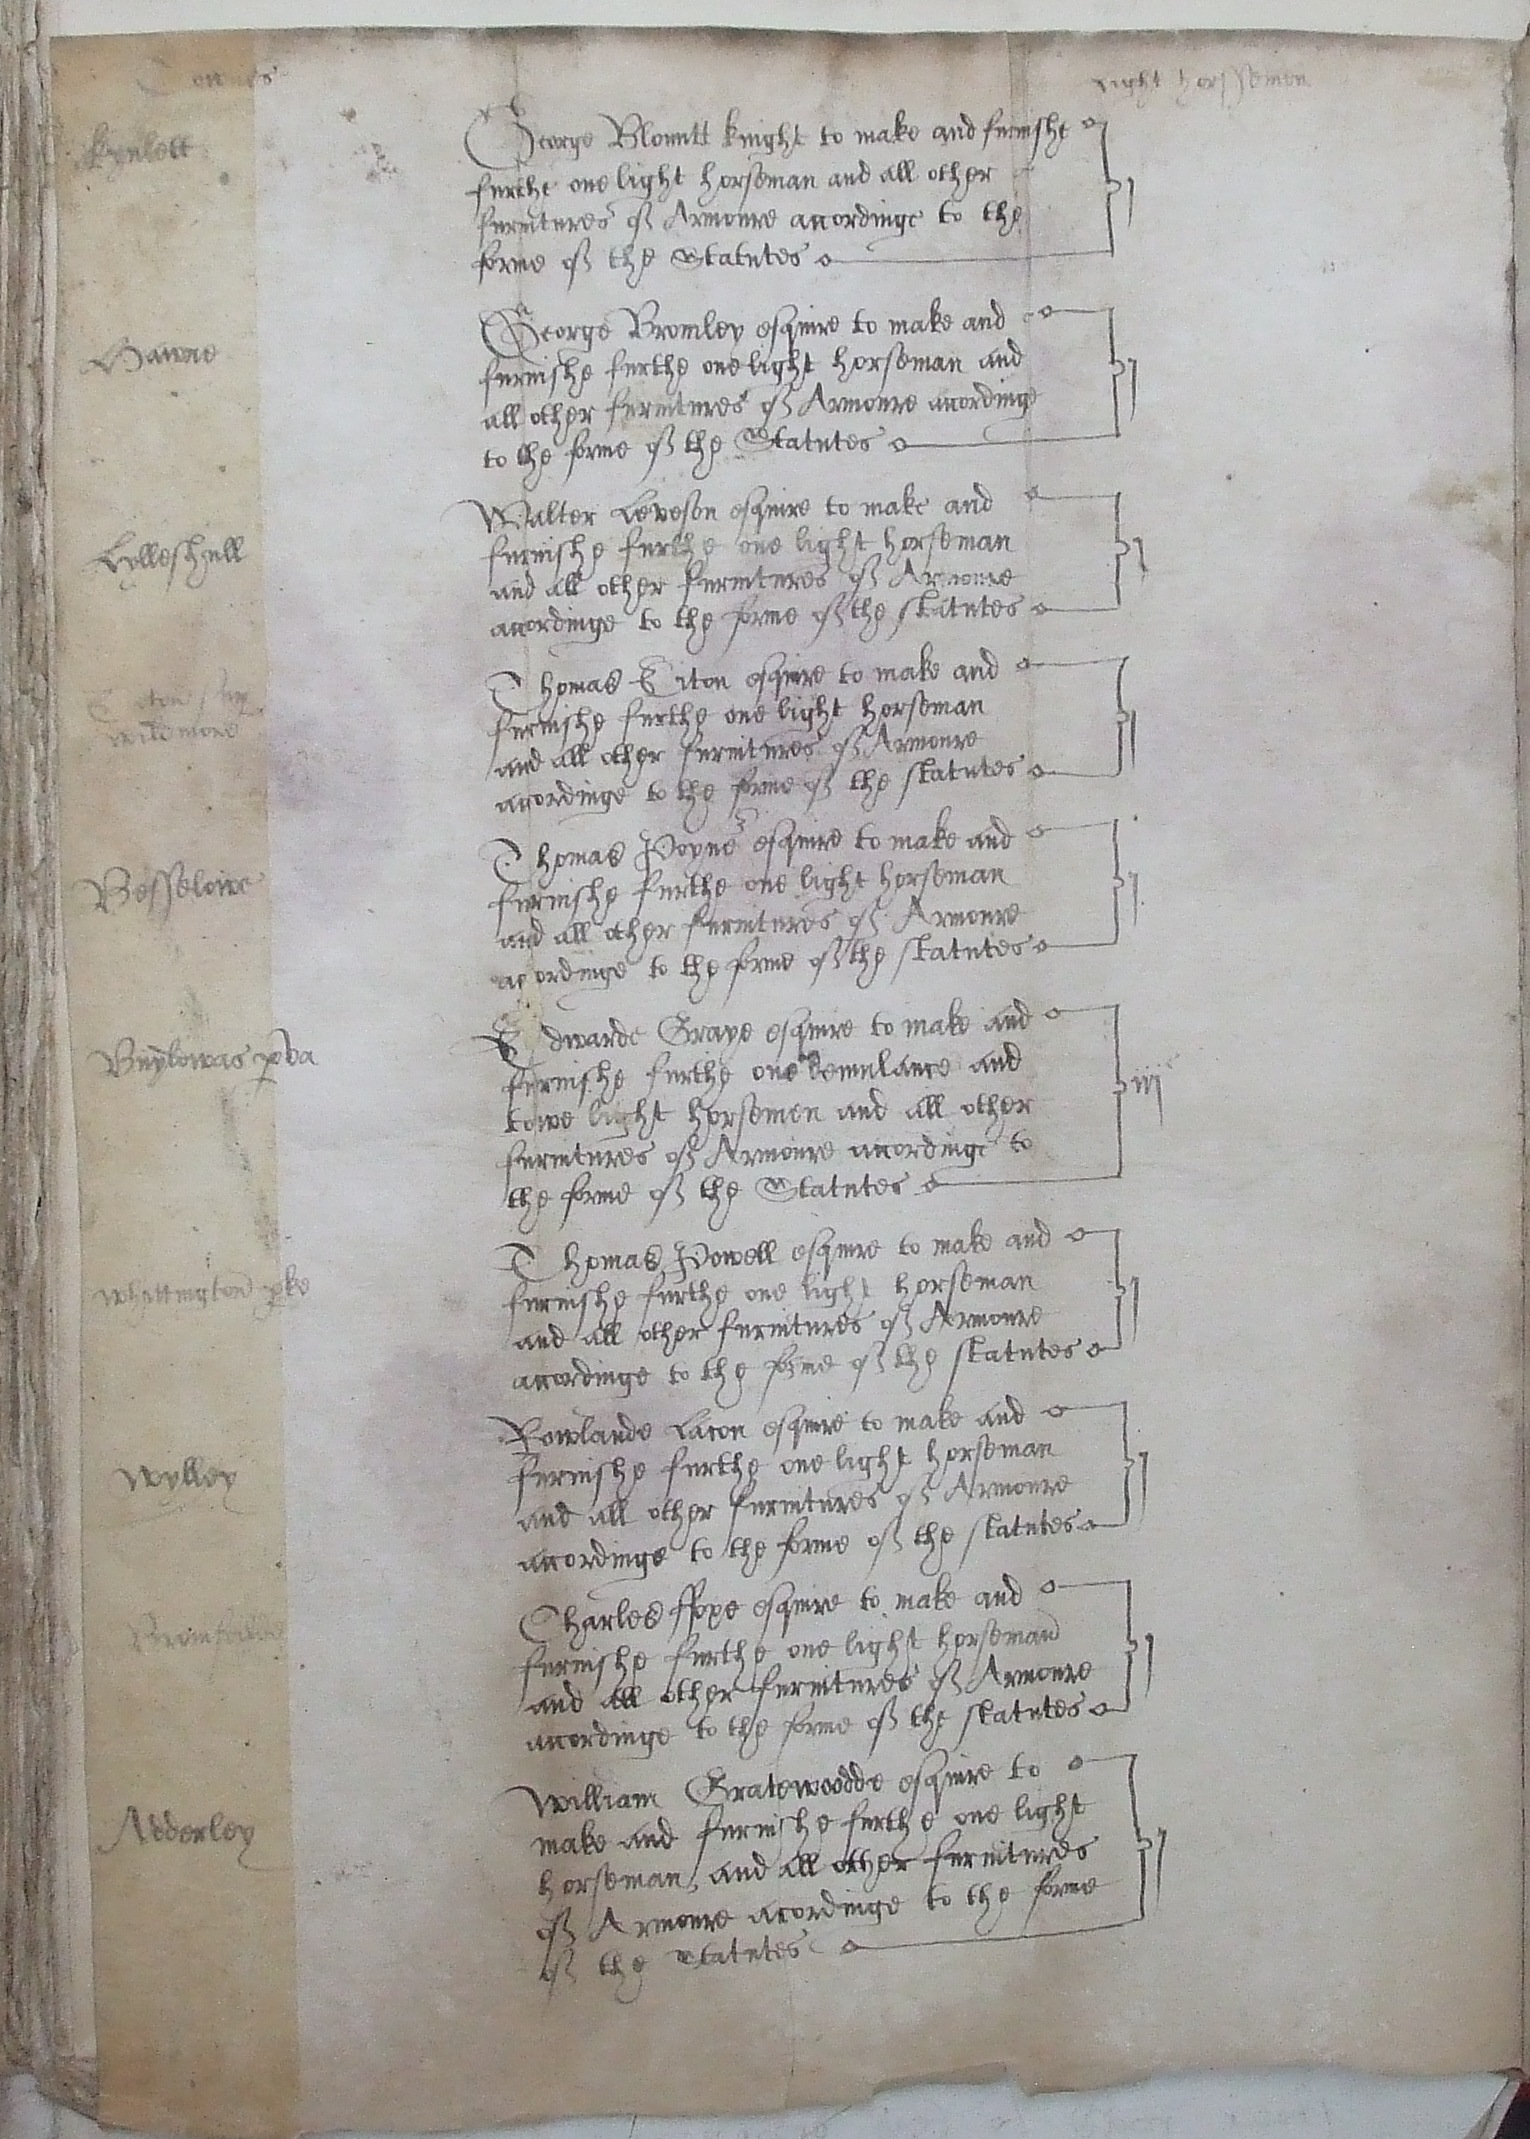 Townes Light horssemen
Kynlett
George Blountt knight to make and furnishe
furthe one light horseman and all other
furnitures of Armoure accordinge to the
forme of the Statutes
j
Hawne
George Bromley esquire to make and
furnishe furthe one light horseman and
all other furnitures of Armoure accordinge
to the forme of the Statutes
j
Lylleshull
Walter Leveson esquire to make and
furnishe furthe one light horseman
and all other furnitures of Armoure
accordinge to the forme of the statutes
j
Eiton
wildmore
Thomas Eiton esquire to make and
furnishe furthe one light horseman
and all other furnitures of Armoure
accordinge to the forme of the statutes
j
Besselowe
Thomas Poyner esquire to make and
furnishe furthe one light horseman
and all other furnitures of Armoure
acordinge to the forme of the statutes
j
Buyldwas
Edwarde Graye esquire to make and
furnishe furthe one demilance and
towe light horsemen and all other
furnitures of Armoure accordinge to
the forme of the Statutes
iij
Whittington pke
Thomas Powell esquire to make and
furnishe furthe one light horseman
and all other furnitures of Armoure
accordinge to the forme of the statutes
j
Wylley
Rowlande Lacon esquire to make and
furnishe furthe one light horseman
and all other furnitures of Armoure
accordinge to the forme of the statutes
j
Bromfeilde
Charles ffoxe esquire to make and
furnishe furthe one light horseman
and all other furnitures of Armoure
accordinge to the forme of the statutes
j
Adderley
William Gratewoodde esquire to
make and furnishe furthe one light
horseman and all other furnitures
of Armoure acordinge to the forme
of the Statutes
j